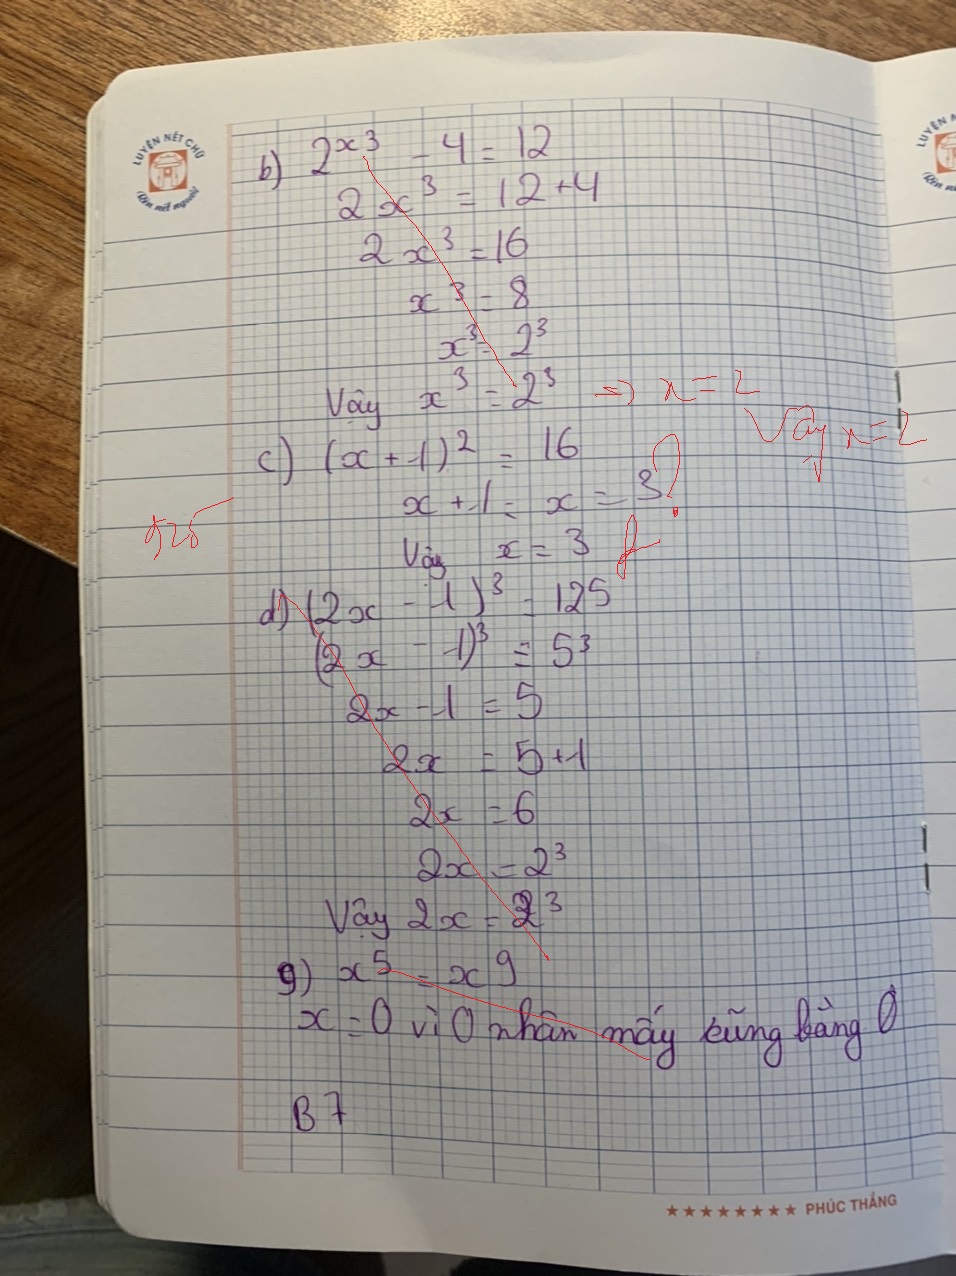 LUYỆN NÉT CHỮ
(Rèn nết người)
b) 2x³ - 4 = 12
2x³ = 12 + 4
2x³ = 16
x³ = 8
x³ = 2³
Vậy x³ = 2³ => x = 2
Vậy x = 2
c) (x + 1)² = 16
x + 1 = x = 3 ?
Vậy x = 3
d) (2x - 1)³ = 125
(2x - 1)³ = 5³
2x - 1 = 5
2x = 5 + 1
2x = 6
2x = 2³
Vậy 2x = 2³
g) x⁵ = x⁹
x = 0 vì 0 nhân mấy cũng bằng 0
B7
★★★★★★★★ PHÚC THẮNG